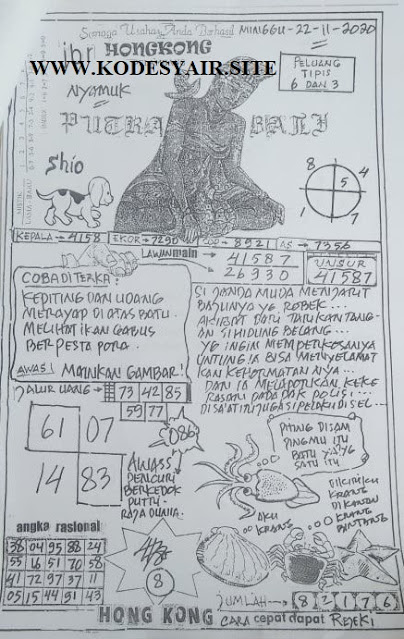 Semoga Usaha Anda Berhasil MINGGU-22-11-2020
HONGKONG
WWW.KODESYAIR.SITE
NYAMUK
PELUANG
TIPIS
6 DAN 3
PUTRA BALI
Shio
8 1
5
4 7
KEPALA→4158 EKOR→7290 COP→8921 AS→7356
LAWAN main 41587
26930
UNSUR
41587
COBA DI TERKA:
KEPITING DAN UDANG
MERAYAP DI ATAS BATU.
MELIHAT IKAN GABUS
BERPESTA PORA.
AWAS! MAINKAN! GAMBAR!
SI JANDA MUDA MENJARIT
BAJUNYA YG ROBEK...
AKIBAT DARI TARIKAN TANG-
AN SI HIDUNG BELANG...
YG INGIN MEMPERKOSANYA
UNTUNG IA BISA MENYELAMAT
KAN KEHORMATAN NYA...
DAN IA MELAPORKAN KEKE
RASAN PADA PAK POLISI...
DISAAT INI JUGA SI PELAKU DI SEL...
JALUR UANG→ 73 42 85
59 77
61 07
14 83
086
AWASS
PENCURI
BERKEDOK
PUTU
RAJA DUNIA.
PING MU ITU
BATU YG
SATU ITU
AKU
KRANG
KRANG
DI KANAN
KRANG
angka rasional
38 04 95 88 24
55 16 51 70 58
41 72 97 37 11
05 15 44 91 43
8
JUMLAH→ 8 2 1 7 6
HONG KONG CARA cepat dapat REJEKI